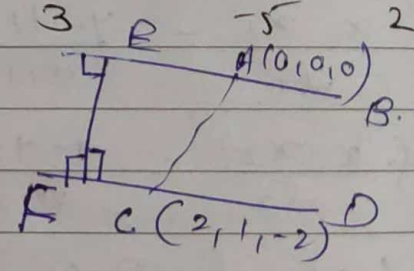 3 -5 2
E A(0,0,0)
B.
F C (2,1,-2) D